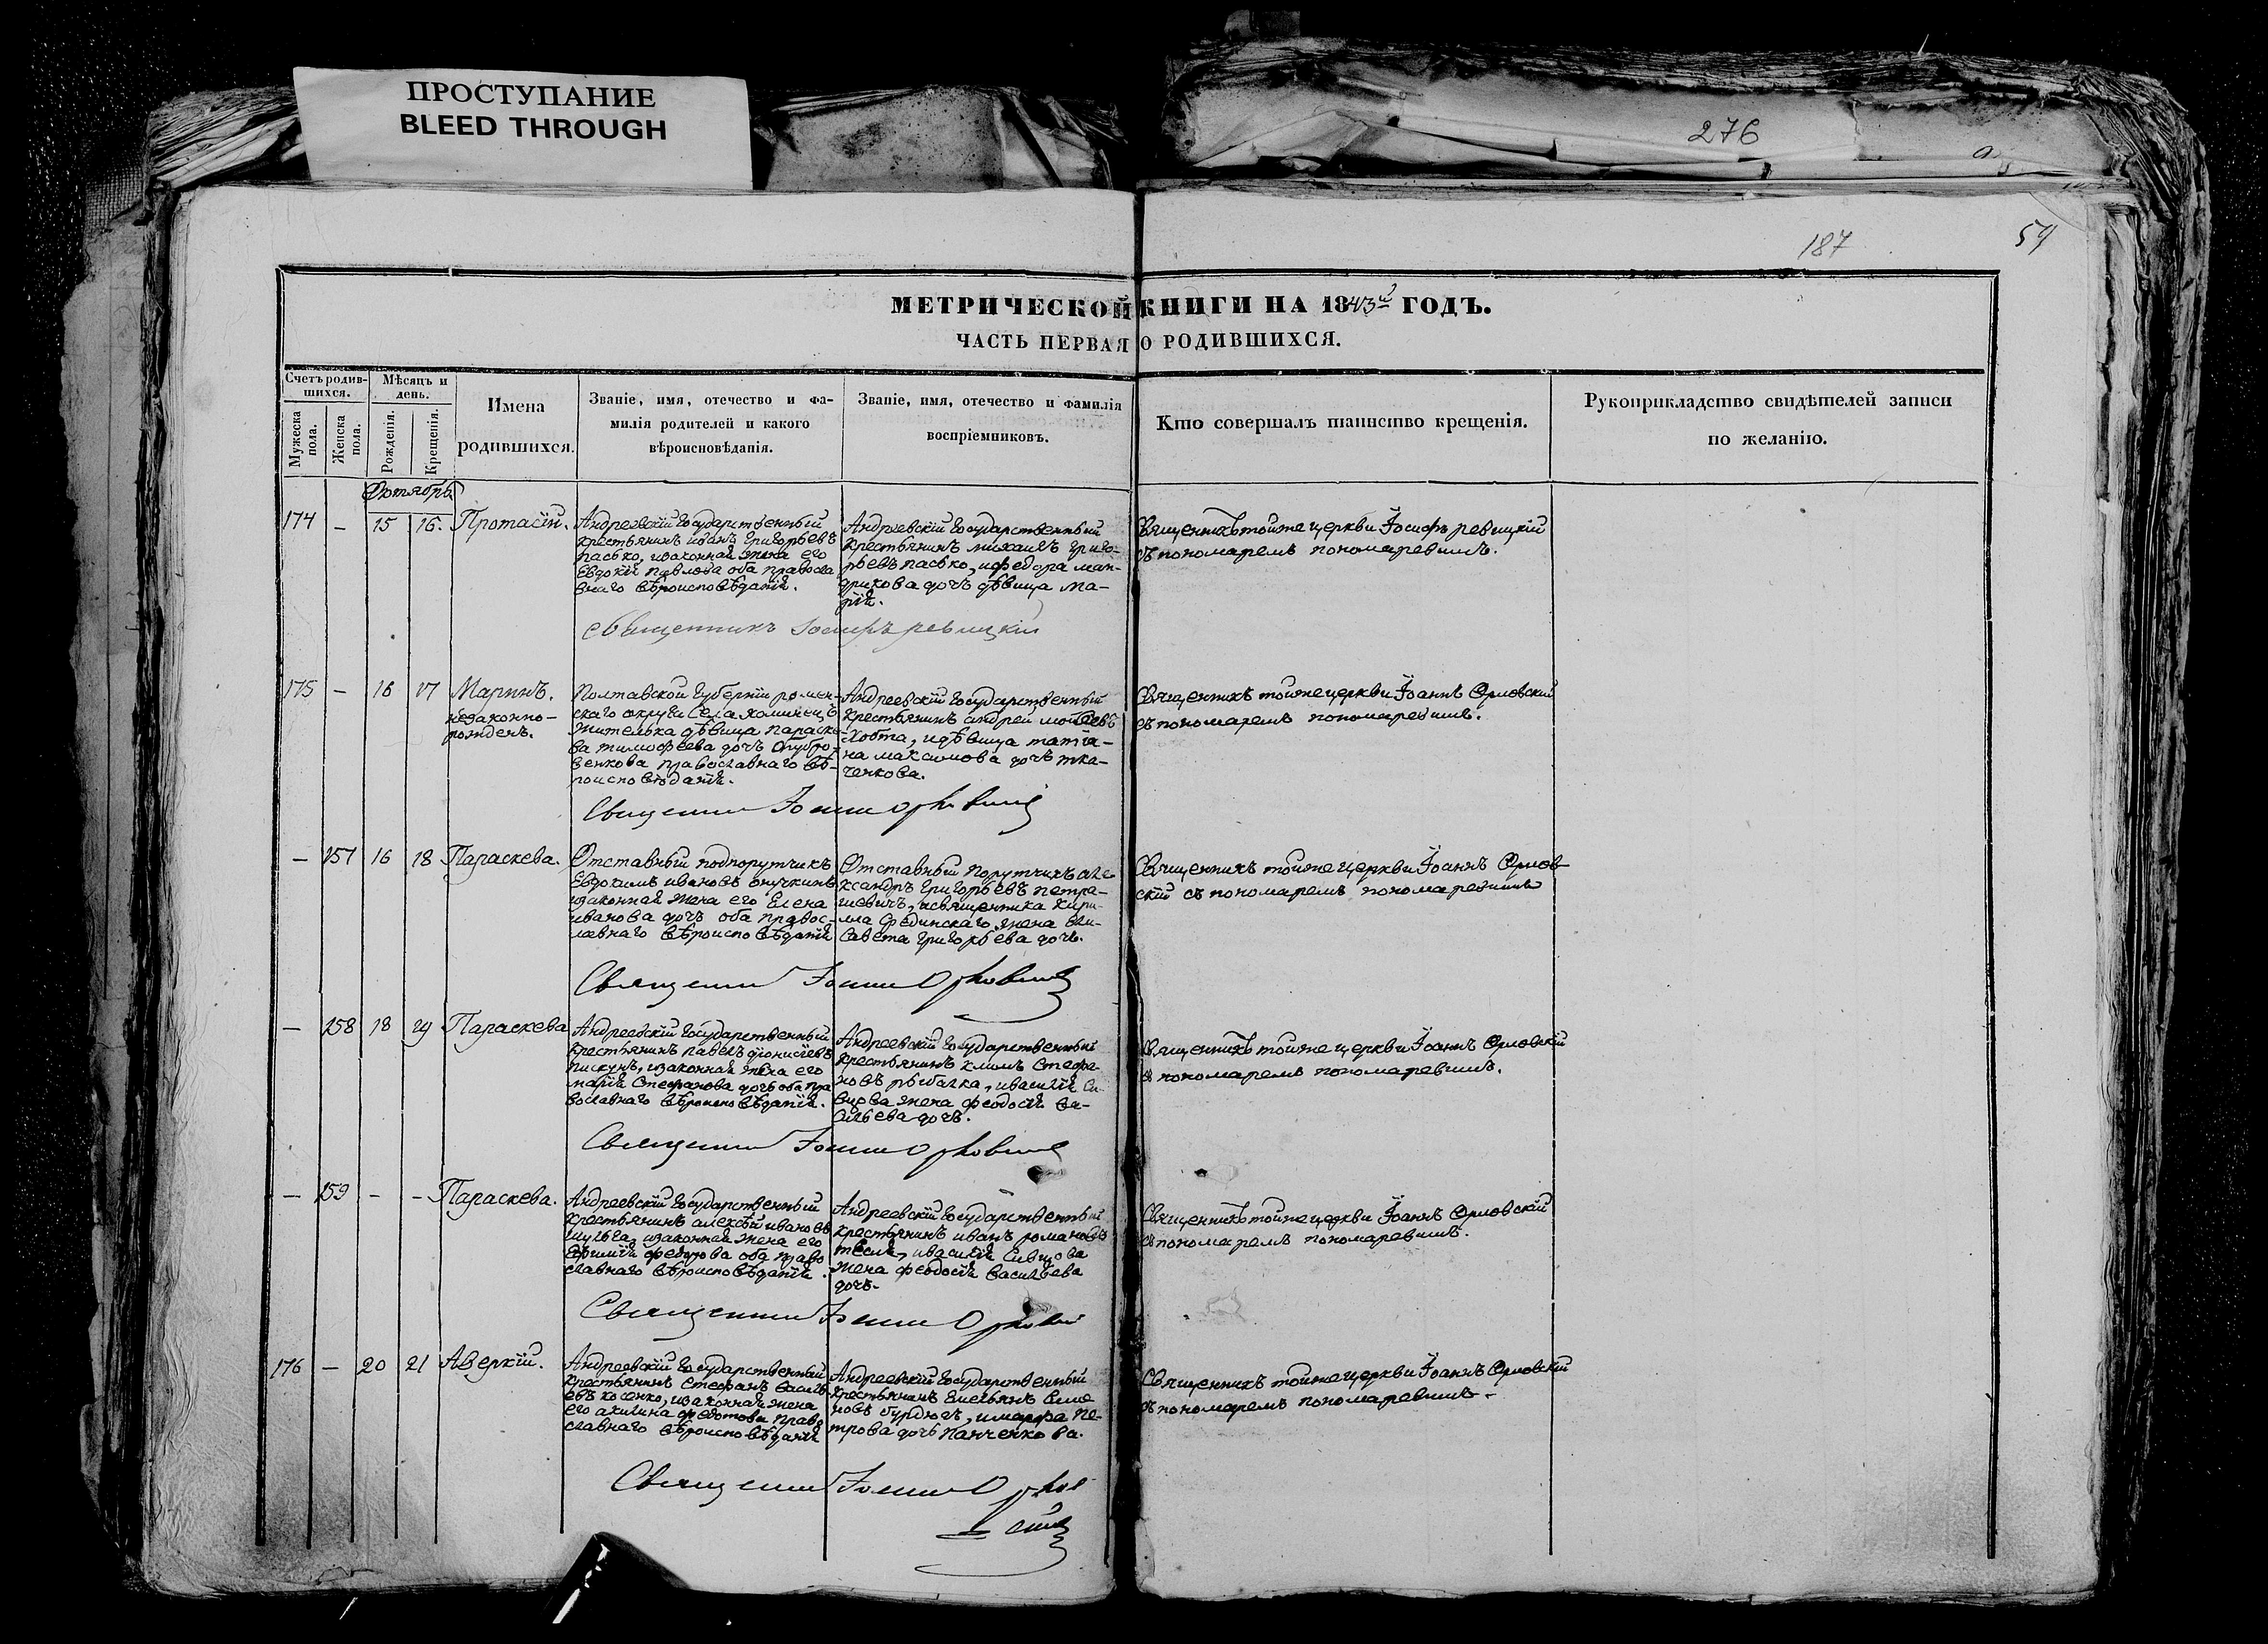 ПРОСТУПАНИЕ
BLEED THROUGH
276
187
59
МЕТРИЧЕСКОЙ КНИГИ НА 1843й ГОДЪ.
ЧАСТЬ ПЕРВАЯ О РОДИВШИХСЯ.
Счетъ родив-
шихся.
Мужеска
пола.
Женска
пола.
Мѣсяцъ и
день.
Рожденія.
Крещенія.
Имена
родившихся.
Званіе, имя, отечество и фа-
милія родителей и какого
вѣроисновѣданія.
Званіе, имя, отечество и фамилія
воспріемниковъ.
Кто совершалъ таинство крещенія.
Рукоприкладство свидѣтелей записи
по желанію.
Октябрь
174 — 15 16. Протасій.
Андреевскій Государственный
крестьянинъ иванъ Григорьевъ
пасько, изаконная жена его
Евдокія павлова оба правосла
внаго вѣроисповѣданія.
Андреевскій Государственный
крестьянинъ михаилъ григо-
рьевъ пасько, и федора ман-
дрикова дочь дѣвица Ма-
рія.
Священникъ тойже церкви Іосифъ ревицкій
съ пономаремъ пономаревимъ.
священникъ Іосифъ ревицкій
175 — 16 17 Маринъ.
незаконно-
рожденъ.
Полтавской Губерніи ромен-
скаго округи Села
жителька дѣвица параске-
ва тимофеева дочь
православнаго вѣ-
роисповѣданія.
Андреевскій Государственный
крестьянинъ андрей моисеевъ
Хобта, и дѣвица татіа-
на максимова дочь тка-
ченкова.
Священникъ тойже церкви Іоаннъ Орловскій
съ пономаремъ пономаревимъ.
Священникъ Іоаннъ Орловскій
— 157 16 18 Параскева.
Отставный подпорутчикъ
Евдокимъ ивановъ
изаконная жена его Елена
иванова дочь оба правос-
лавнаго вѣроисповѣданія
Отставный порутчикъ але
ксандръ Григорьевъ петра-
шевичъ, исвященника кири-
ла Фединскаго жена ели-
савета григорьева дочь.
Священникъ тойже церкви Іоаннъ Орлов-
скій съ пономаремъ пономаревимъ
Священникъ Іоаннъ Орловскій
— 158 18 19 Параскева
Андреевскій Государственный
крестьянинъ павелъ діонисіевъ
пискунъ, изаконная жена его
марія Стефанова дочь оба пра
вославнаго вѣроисповѣданія.
Андреевскій Государственный
крестьянинъ климъ Стефа-
новъ рыбалка, ивасилія
жена феодосія ва-
сильева дочь.
Священникъ тойже церкви Іоаннъ Орловскій
съ пономаремъ пономаревимъ.
Священникъ Іоаннъ Орловскій
— 159 - - Параскева.
Андреевскій Государственный
крестьянинъ алексѣй ивановъ
шульга, изаконная жена его
Евфимія федорова оба право
славнаго вѣроисповѣданія.
Андреевскій Государственный
крестьянинъ иванъ романовъ
тесля, ивасилія
жена феодосія васильева
дочь.
Священникъ тойже церкви Іоаннъ Орловскій
съ пономаремъ пономаревимъ.
Священникъ Іоаннъ Орловскій
176 — 20 21 Аверкій.
Андреевскій Государственный
крестьянинъ Стефанъ василь
евъ косенко, изаконная жена
его акилина федотова право
славнаго вѣроисповѣданія
Андреевскій Государственный
крестьянинъ Емельянъ
новъ бурдюгъ, и марфа пе-
трова дочь панченкова.
Священникъ тойже церкви Іоаннъ Орловскій
съ пономаремъ пономаревимъ.
Священникъ Іоаннъ Орлов
скій